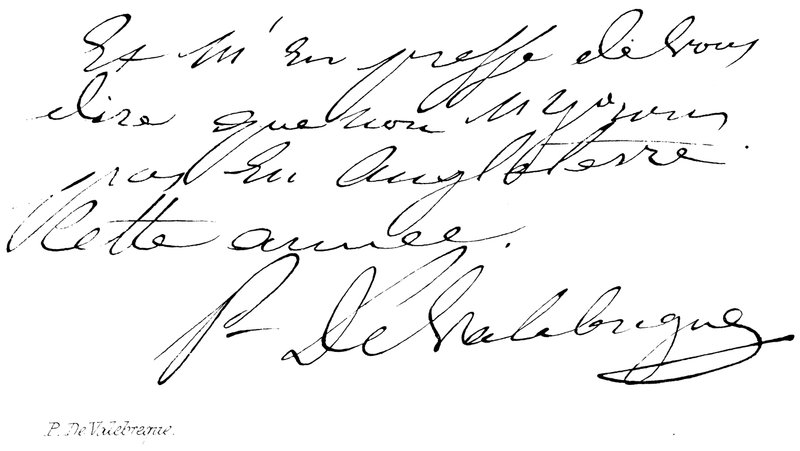 Et m'en presse de vous
dire que non n'yrons
pas en Angleterre
cette année.
P. De Valabregue
P. De Valebreque.